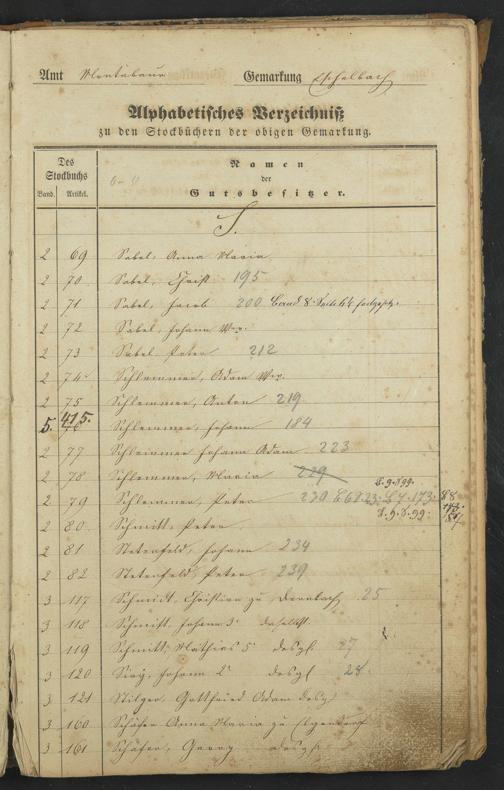 Amt Montabaur Gemarkung Eschelbach
Alphabetisches Verzeichniß
zu den Stockbüchern der obigen Gemarkung.
Des Stockbuchs
Band. Artikel.
Namen
der
Gutsbesitzer.
S.
2 69 Sabel, Anna Maria
2 70 Sabel, Christ 195
2 71 Sabel, Jacob 200 Band 8. Seite 64 fortgesetzt.
2 72 Sabel, Johann
2 73 Sabel Peter 212
2 74 Schlemmer, Adam
2 75 Schlemmer, Anton 219
5. 415. Schlemmer, Johann 184
2 77 Schlemmer Johann Adam 223
2 78 Schlemmer, Maria 229
2 79 Schlemmer, Peter 230
2 80 Schmitt, Peter
2 81 Stetenfeld, Johann 234
2 82 Stetenfeld, Peter 239
3 117 Schmidt, Christian zu Dernbach 25
3 118 Schmitt, Johann 3r daselbst
3 119 Schmitt, Mathias 5r desgl 27
3 120 Johann 2r desgl 28
3 121 Stilger, Gottfried Adam desgl
3 160 Schäfer Anna Maria zu Elgendorf
3 161 Schäfer, Georg desgl